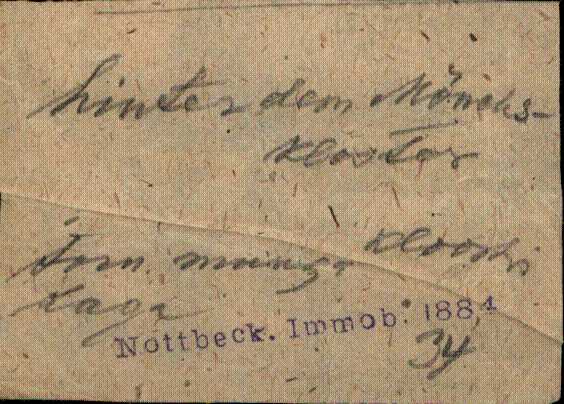 hinter dem Mönchs-
kloster
torn munga kloostri
taga
Nottbeck. Immob. 1884
34